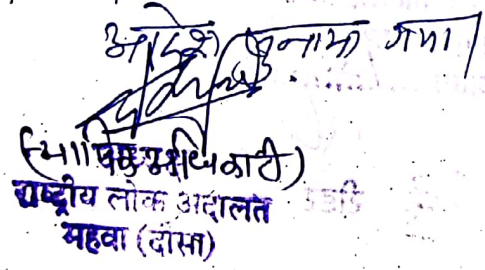 आदेश सुनाया गया।
(न्यायिक अधिकारी)
राष्ट्रीय लोक अदालत
महवा (दौसा)